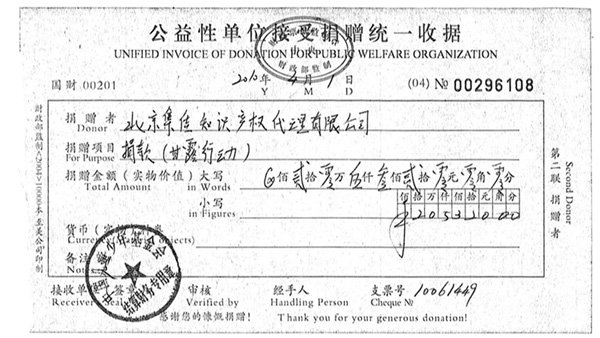 公益性单位接受捐赠统一收据
UNIFIED INVOICE OF DONATION FOR PUBLIC WELFARE ORGANIZATION
财政部监制
国财 00201
2010 Y 4 M 1 D
(04) № 00296108
捐赠者 北京集佳知识产权代理有限公司
Donor
捐赠项目 捐款(甘露行动)
For Purpose
捐赠金额(实物价值)大写 佰贰拾零万伍仟叁佰贰拾零元零角零分
Total Amount in Words
小写 佰拾万仟佰拾元角分
in Figures 205320 00
货币(实
Currency objects)
备注
Note
接收单 审核 经手人 支票号 10061449
Receiver's Seal Verified by Handling Person Cheque №
感谢您的慷慨捐赠! Thank you for your generous donation!
第二联 捐赠者
Second Donor
结算财务专用章